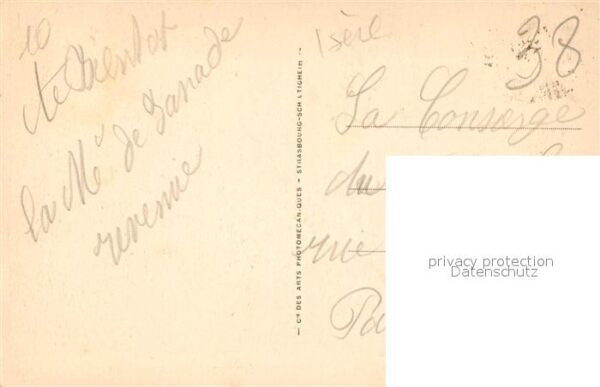 10
la Mé de
revenue
— Cie DES ARTS PHOTOMECANIQUES - STRASBOURG-SCHILTIGHEIM —
Isère
38
La Conserge
du
rue
Pa
privacy protection
Datenschutz